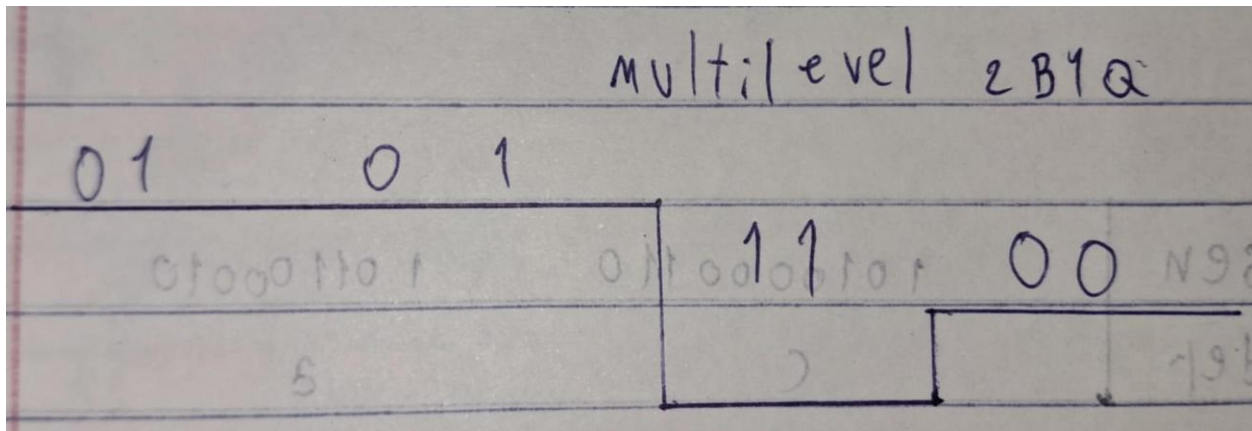 multilevel 2B1Q
01 0 1
11 00